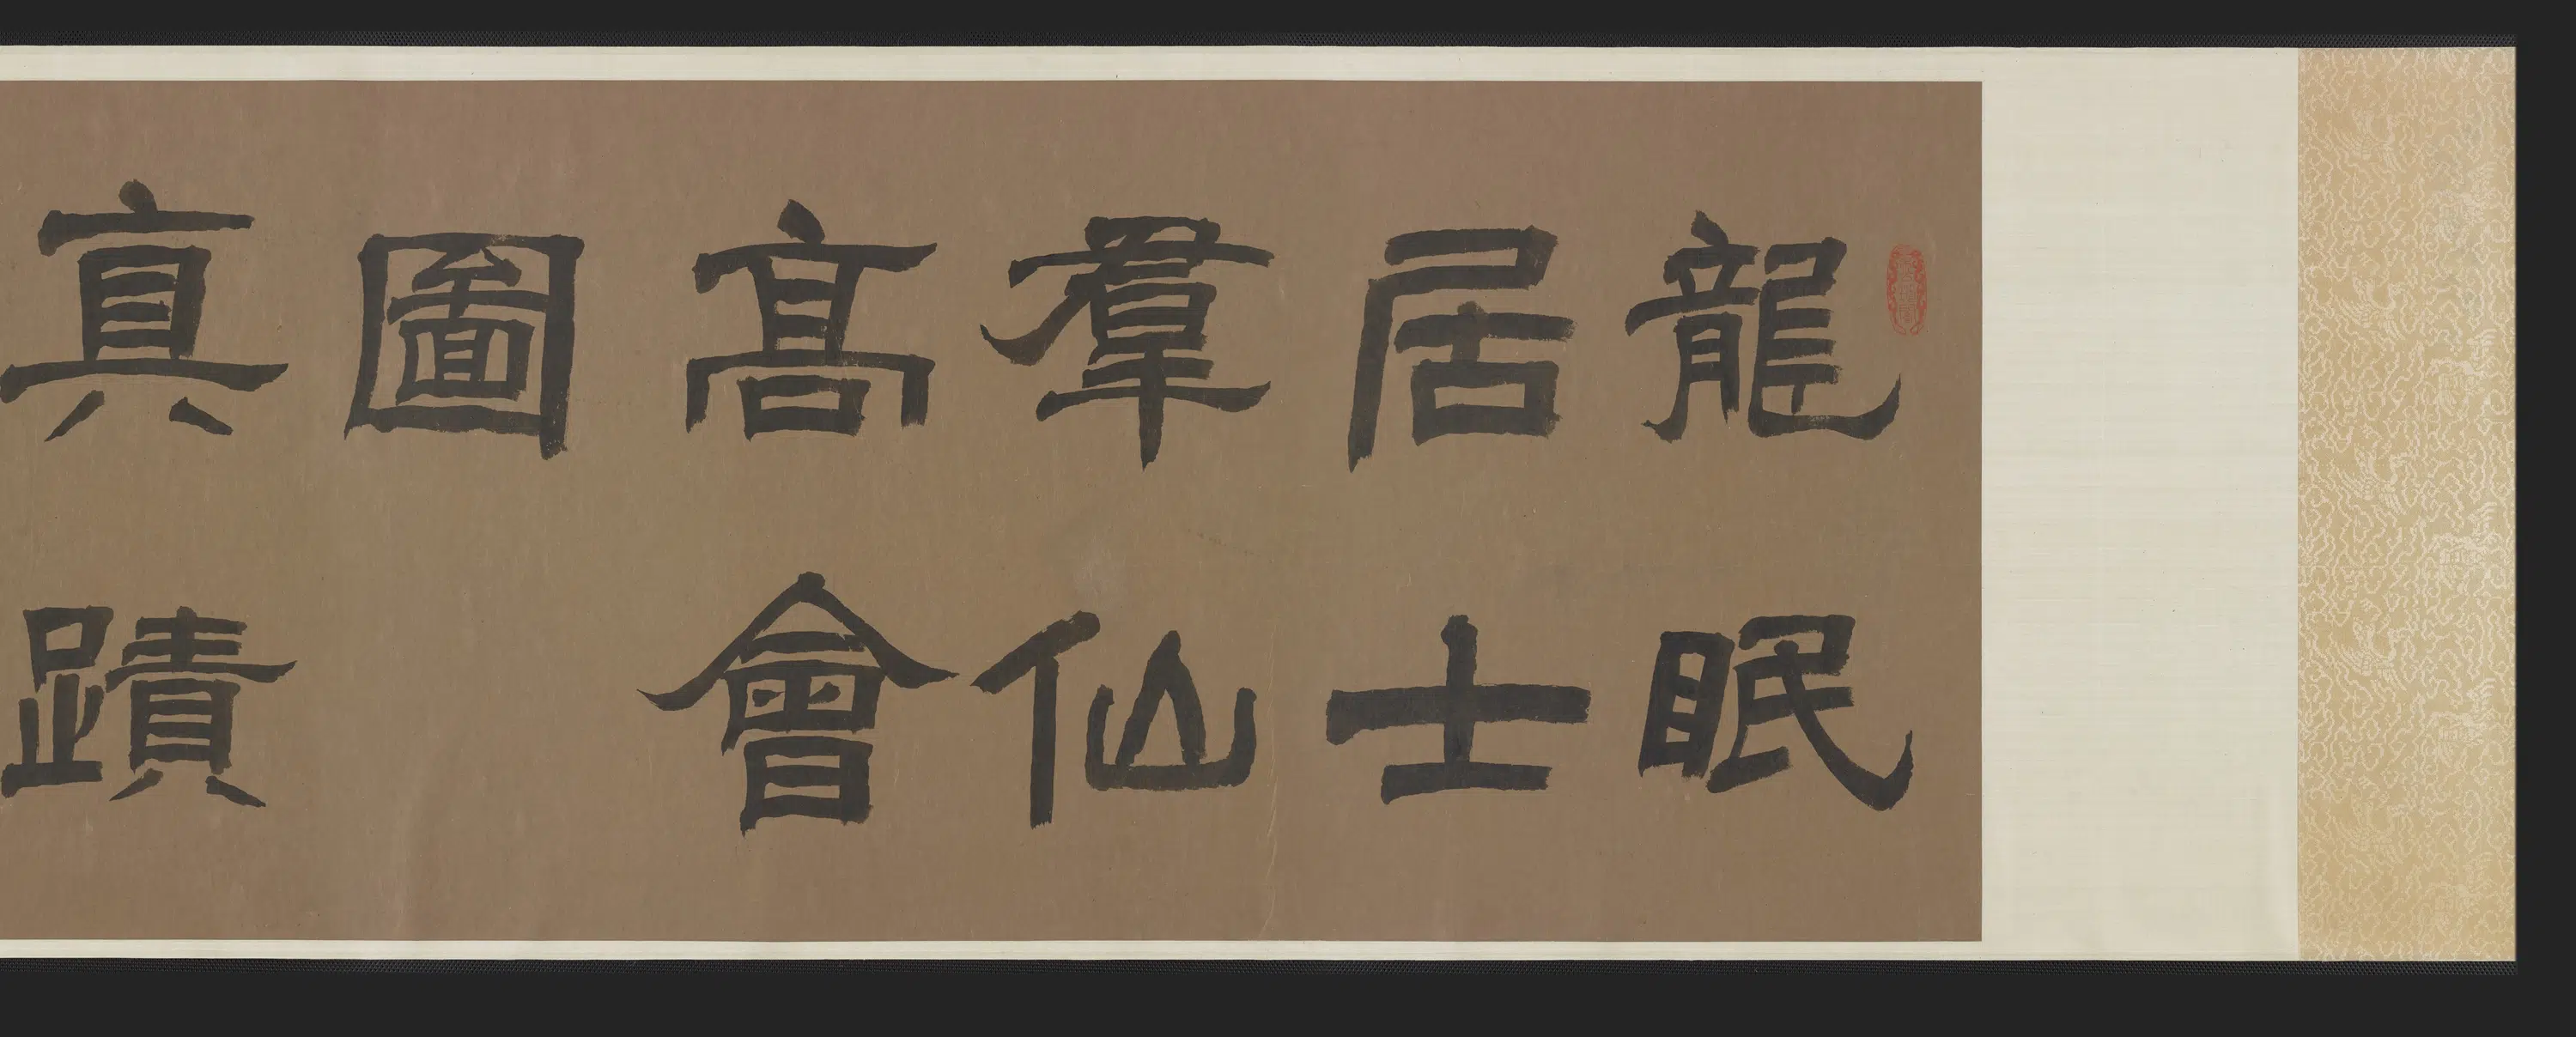 龍眠
居士
羣仙
高會
圖
真蹟